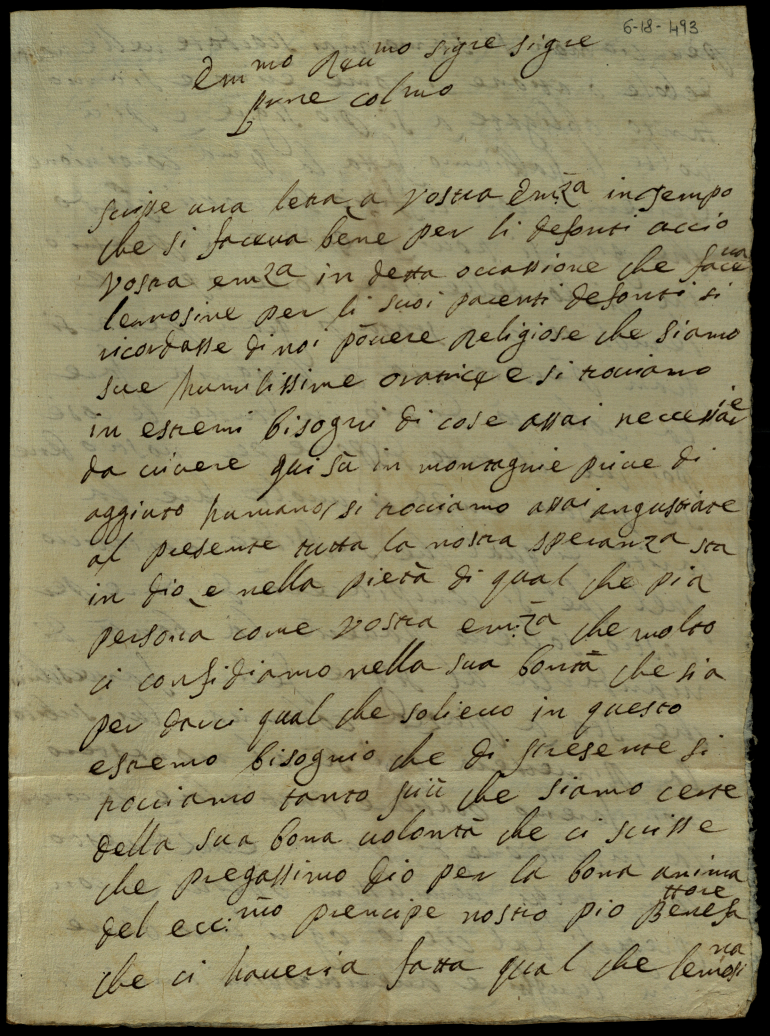 6-18-493
Em^mo Reu^mo sigre sigre
prne colmo
scrisse una letra a vostra Emza in tempo
che si faceua bene per li defonti accio
vostra emza in detta occassione che faceua
lemosine per li suoi parenti defonti si
ricordasse di noi pouere Religiose che siamo
sue humilissime oratrice e si trouiamo
in estremi bisogni di cose assai necessarie
da uiuere qui sù in montagnie priue di
aggiuto humano si trouiamo assai angustiate
al presente tutta la nostra speranza sta
in dio e nella pietà di qual che pia
persona come vostra emza che molto
ci confidiamo nella sua bontà che sia
per darci qual che solieuo in questo
estremo bisognio che di presente si
trouiamo tanto più che siamo certe
della sua bona uolontà che ci scrisse
che pregassimo dio per la bona anima
del ecc:mo prencipe nostro pio Benefattore
che ci haueria fatta qual che lemosina